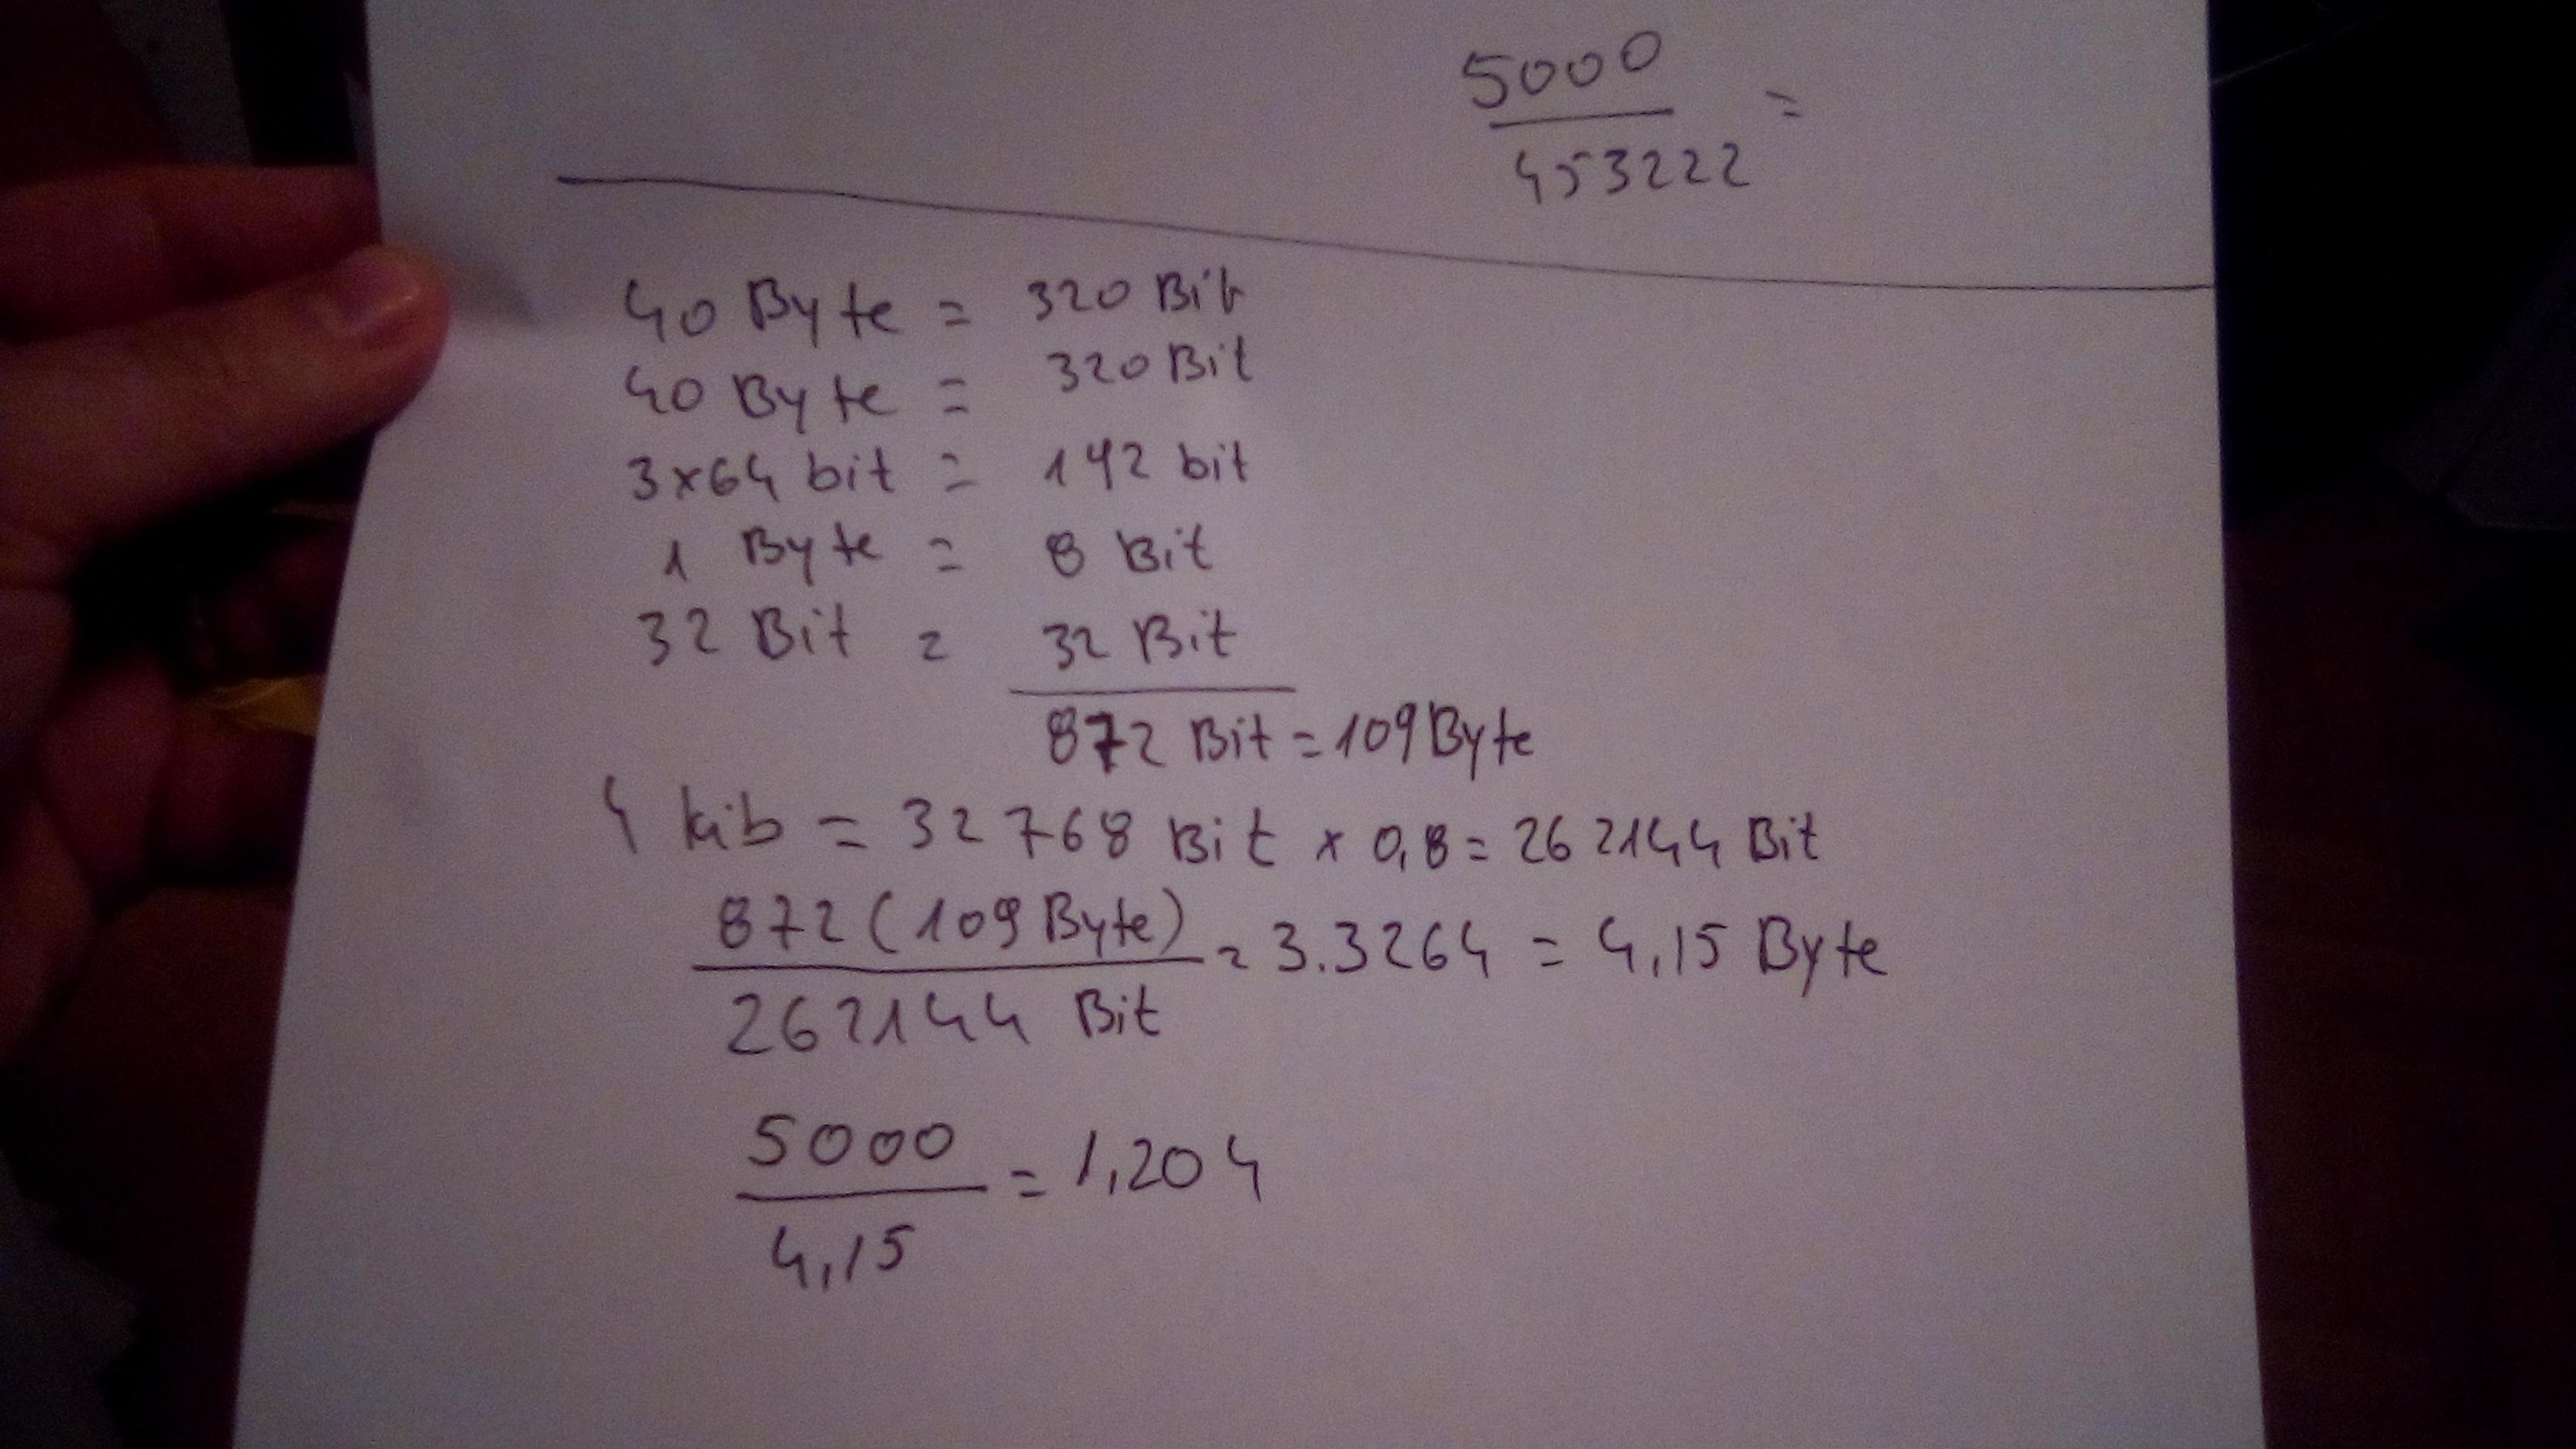 5000
453222 =
40 Byte = 320 Bit
40 Byte = 320 Bit
3x64 bit = 192 bit
1 Byte = 8 Bit
32 Bit = 32 Bit
872 Bit = 109 Byte
4 kib = 32768 Bit x 0,8 = 262144 Bit
872 (109 Byte)
262144 Bit = 3.3264 = 4,15 Byte
5000
4,15 = 1,204